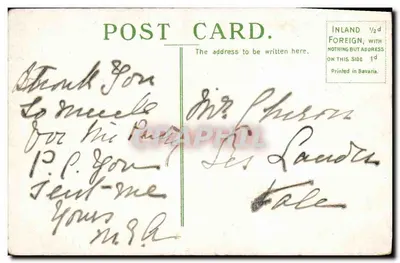 POST CARD.
The address to be written here.
INLAND ½d
FOREIGN, WITH
NOTHING BUT ADDRESS
ON THIS SIDE 1d
Printed in Bavaria.
Thank You
So Much
for the Pretty
P.C. You
Sent me
Yours
Les Landes
Vale